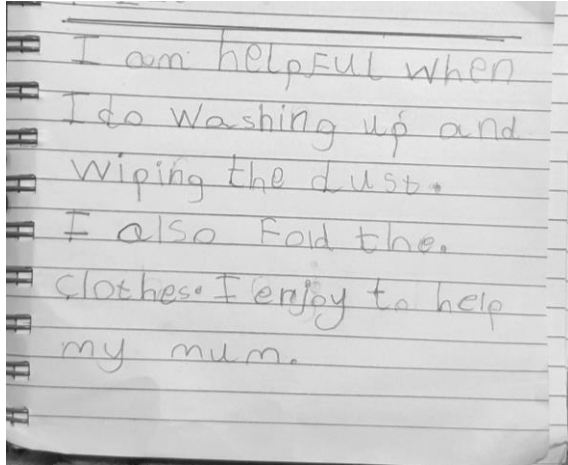 I am helpFul when
I do washing up and
wiping the dust.
I also Fold the.
clothes. I enjoy to help
my mum.